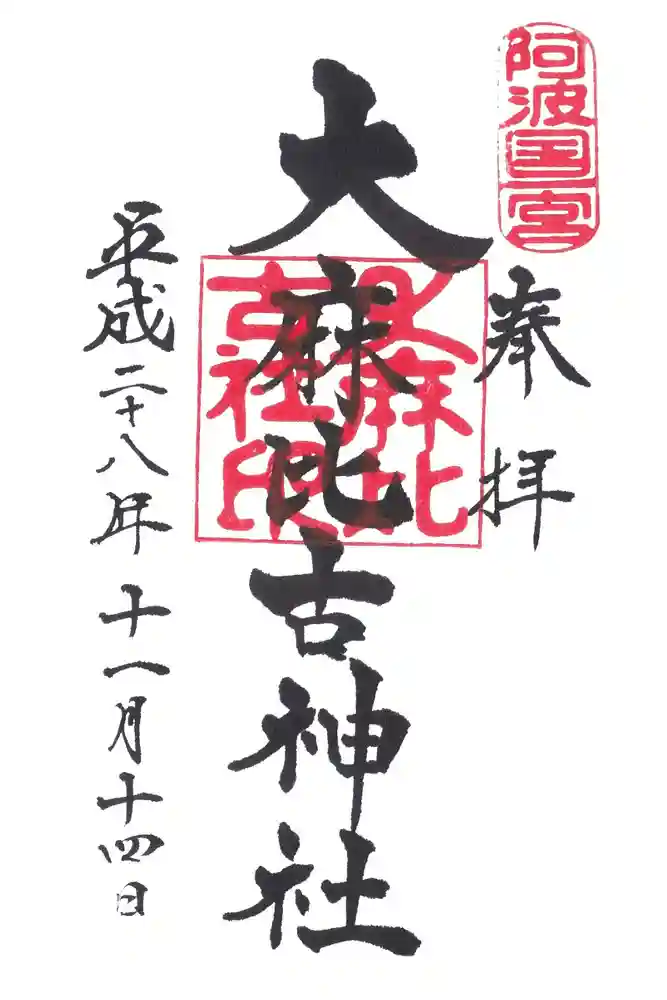 阿波国一宮
奉拝
大麻比古神社
大麻比古社印
平成二十八年十一月十四日